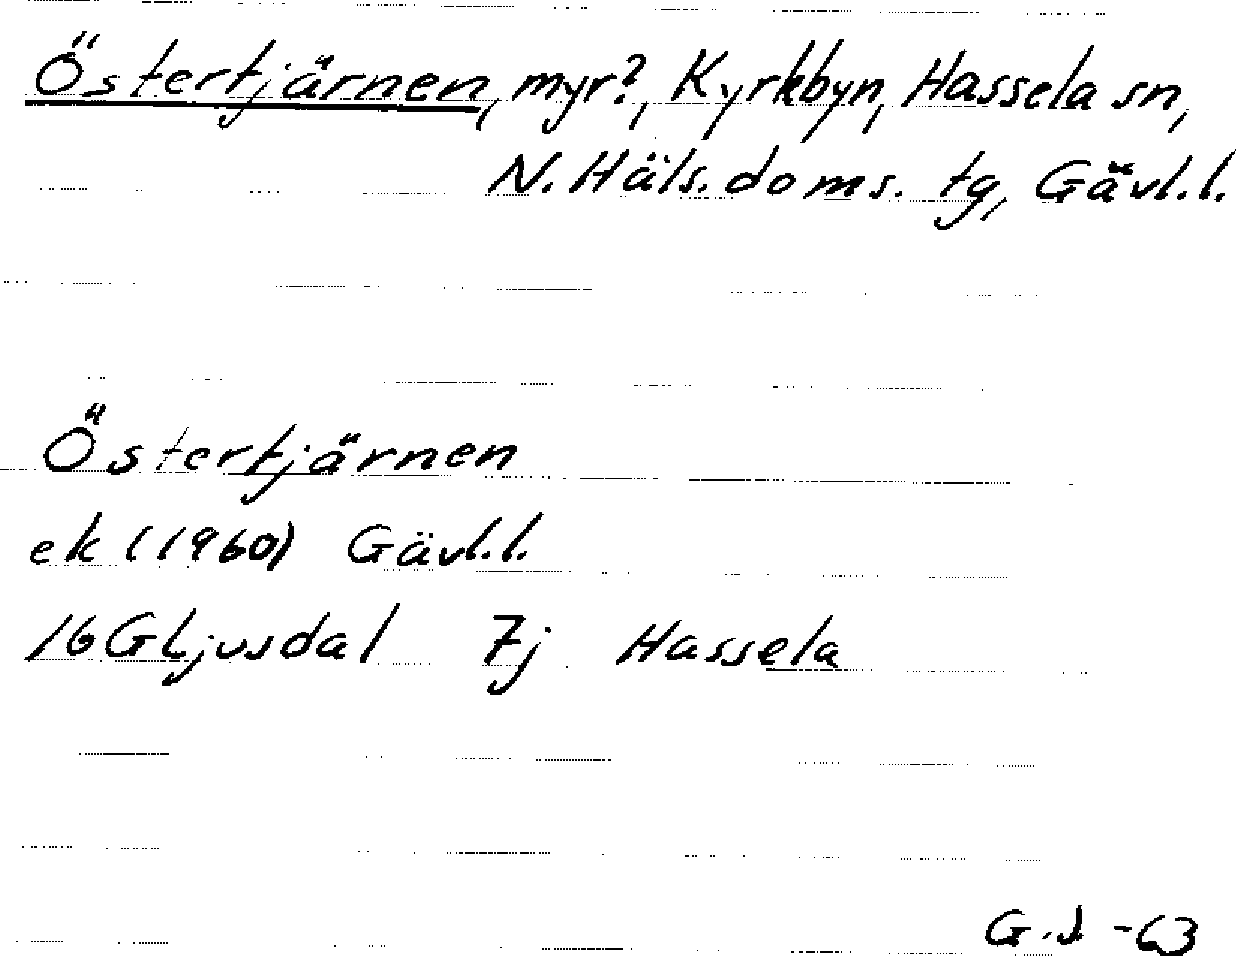 Östertjärnen, myr?, Kyrkbyn, Hassela sn,
N. Häls. doms. tg, Gävl.l.
Östertjärnen
ek (1960) Gävl.l.
16G Ljusdal 7j Hassela
G.J -63